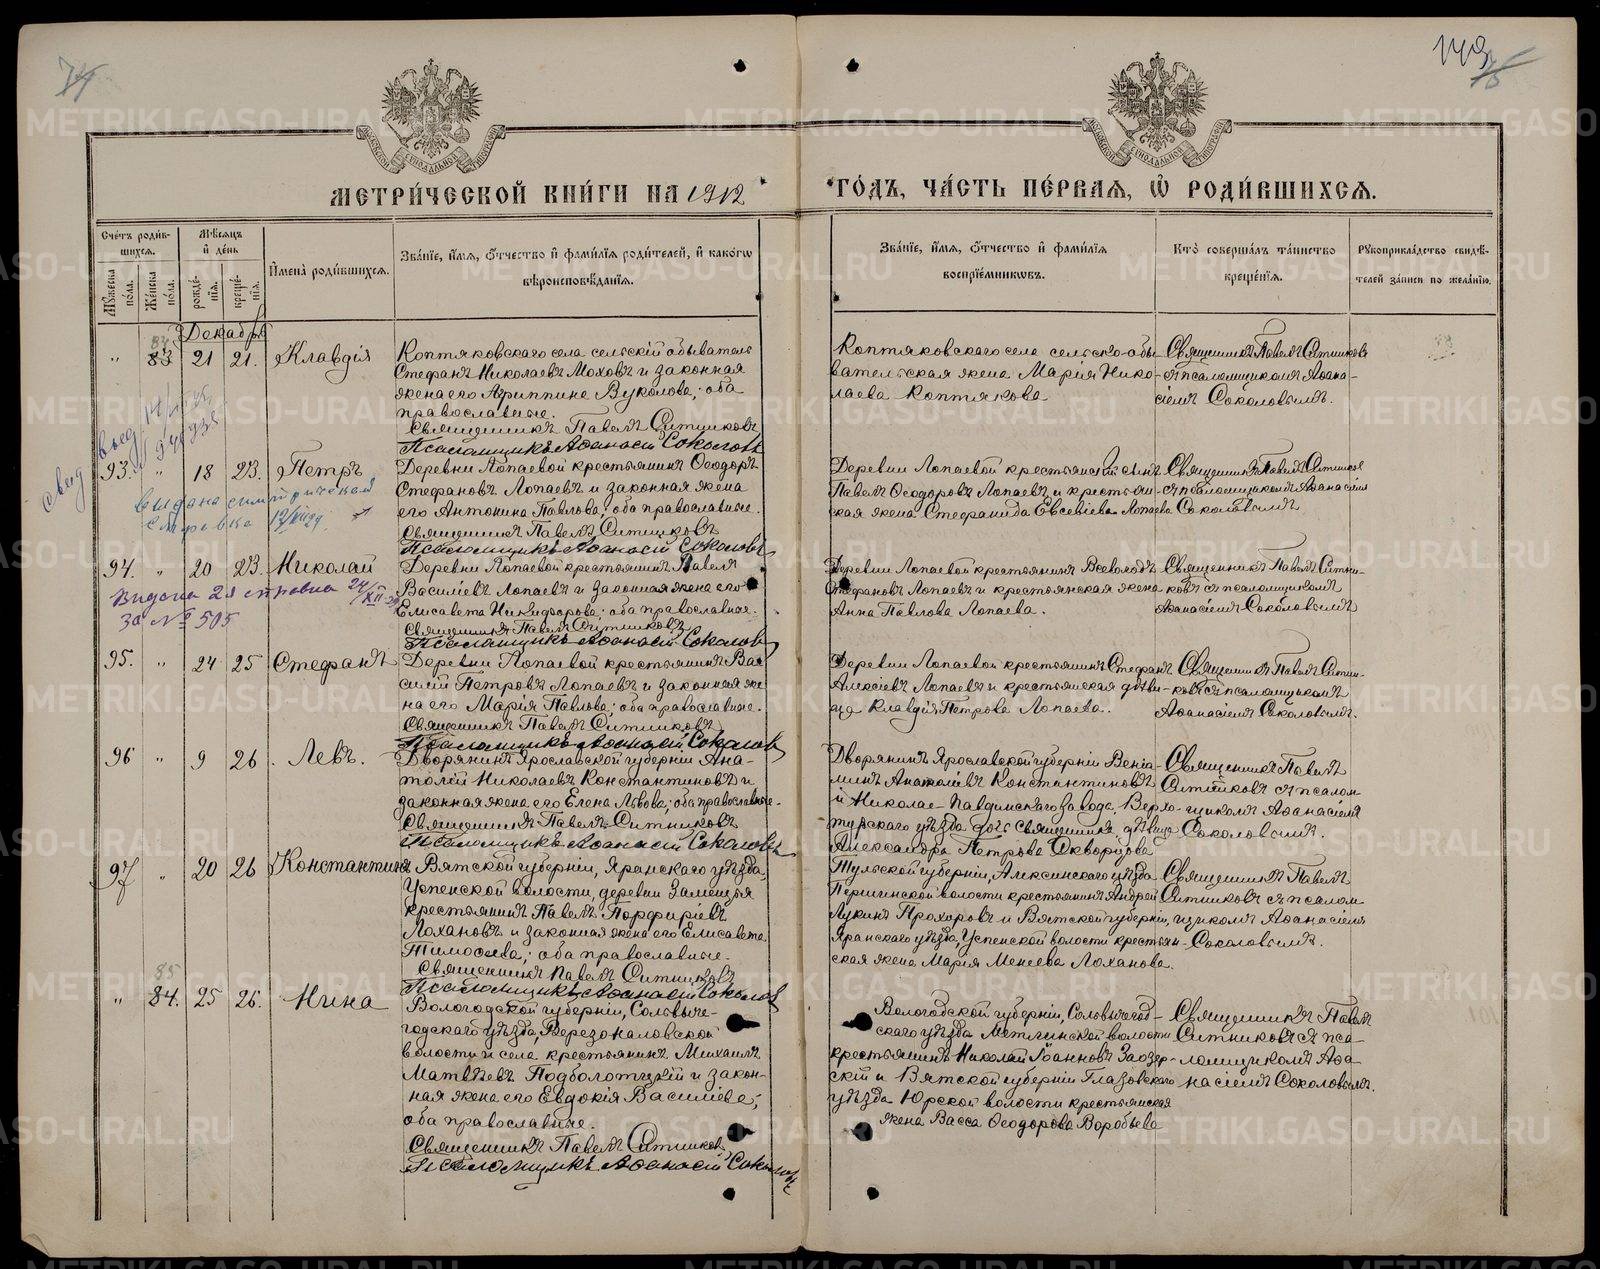 143
МЕТРИ́ЧЕСКОЙ КНИ́ГИ НА 1912
ГО́ДЪ, ЧА́СТЬ ПЕ́РВАЯ, Ѽ РОДИ́ВШИХСЯ.
Сче́тъ роди́в-
шихся.
Му́жеска
по́ла.
Же́нска
по́ла.
Мѣ́сяцъ
и҆ де́нь
рожде́-
нїя.
креще́-
нїя.
И҆мена̀ роди́вшихся.
Зва́нїе, и҆́мя, ѻ҆́тчество и҆ фами́лїя роди́телей, и҆ како́гѡ
вѣроисповѣ́данїя.
Зва́нїе, и҆́мя, ѻ҆́тчество и҆ фами́лїя
воспрїе́мникѡвъ.
Кто̀ соверша́лъ та́инство
креще́нїя.
Рꙋкоприкла́дство свидѣ́-
телей за́писи по жела́нїю.
Декабрь
" 83 21 21. Клавдія
Коптяковскаго села сельскій обыватель
Стефанъ Николаевъ Моховъ и законная
жена его Агриппина Вуколова; оба
православные.
Священникъ Павелъ Ситниковъ
Псаломщикъ Аѳанасій Соколовъ
Коптяковскаго села сельско-обы-
вательская жена Марія Нико-
лаева Коптякова
Священникъ Павелъ Ситниковъ
съ псаломщикомъ Аѳана-
сіемъ Соколовымъ.
93. " 18 23. Петръ
Деревни Лопаевой крестьянинъ Ѳеодоръ
Стефановъ Лопаевъ и законная жена
его Антонина Павлова; оба православные.
Священникъ Павелъ Ситниковъ
Псаломщикъ Аѳанасій Соколовъ
Деревни Лопаевой крестьянскій сынъ
Павелъ Ѳеодоровъ Лопаевъ и крестьян-
ская жена Стефанида Евсевіева Лопаева
Священникъ Павелъ Ситников
съ псаломщикомъ Аѳанасіем
Соколовымъ
94. " 20 23. Николай
Выдана 2я справка 24/XII
за № 505
Деревни Лопаевой крестьянинъ Павелъ
Васильевъ Лопаевъ и законная жена его
Елисавета Никифорова; оба православные.
Священникъ Павелъ Ситниковъ
Псаломщикъ Аѳанасій Соколовъ
Деревни Лопаевой крестьянинъ Всеволодъ
Стефановъ Лопаевъ и крестьянская жена
Анна Павлова Лопаева.
Священникъ Павелъ Ситни-
ковъ съ псаломщикомъ
Аѳанасіемъ Соколовымъ
95. " 24 25 Стефанъ
Деревни Лопаевой крестьянинъ Ва-
силій Петровъ Лопаевъ и законная же-
на его Марія Павлова; оба православные.
Священникъ Павелъ Ситниковъ
Псаломщикъ Аѳанасій Соколовъ
Деревни Лопаевой крестьянинъ Стефанъ
Алексіевъ Лопаевъ и крестьянская дѣви-
ца Клавдія Петрова Лопаева.
Священникъ Павелъ Ситни-
ковъ съ псаломщикомъ
Аѳанасіемъ Соколовымъ.
96 " 9 26 Левъ.
Дворянинъ Ярославской губерніи Ана-
толій Николаевъ Константиновъ и
законная жена его Елена Львова; оба православные.
Священникъ Павелъ Ситниковъ
Псаломщикъ Аѳанасій Соколовъ
Дворянинъ Ярославской губерніи Веніа-
минъ Анатоліевъ Константиновъ
и Николае-Павдинскаго завода, Верхо-
турскаго уѣзда дочь священника, дѣвица
Александра Петрова Скворцова
Священникъ Павелъ
Ситниковъ съ псалом-
щикомъ Аѳанасіемъ
Соколовымъ.
97 " 20 26 Константинъ
Вятской губерніи, Яранскаго уѣзда,
Успенской волости, деревни Замещья
крестьянинъ Павелъ Порфиріевъ
Лохановъ и законная жена его Елисавета
Тимоѳеева; оба православные.
Священникъ Павелъ Ситниковъ
Псаломщикъ Аѳанасій Соколовъ
Тульской губерніи, Алексинскаго уѣзда
Першинской волости крестьянинъ Андрей
Лукинъ Прохоровъ и Вятской губерніи,
Яранскаго уѣзда, Успенской волости крестьян-
ская жена Марія Менеева Лоханова.
Священникъ Павелъ
Ситниковъ съ псалом-
щикомъ Аѳанасіемъ
Соколовымъ.
85
" 84. 25 26. Нина
Вологодской губерніи, Сольвыче-
годскаго уѣзда, Березоналовской
волости и села крестьянинъ Михаилъ
Матвѣевъ Подболотцкій и закон-
ная жена его Евдокія Василіева;
оба православные.
Священникъ Павелъ Ситниковъ
Псаломщикъ Аѳанасій Соколовъ
Вологодской губерніи, Сольвычегод-
скаго уѣзда Метлинской волости
крестьянинъ Николай Іоанновъ Заозер-
скій и Вятской губерніи Глазовскаго
уѣзда Юрской волости крестьянская
жена Васса Ѳеодорова Воробьева
Священникъ Павелъ
Ситниковъ съ пса-
ломщикомъ Аѳа-
насіемъ Соколовымъ.